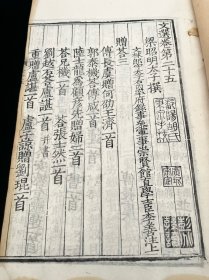 文選卷第二十五
梁昭明太子撰
文林郎守太子右內率府錄事參軍事崇賢館直學士臣李善注上
贈荅三
傅長虞贈何劭王濟一首
郭泰機荅傅咸一首
陸士龍為顧彥先贈婦二首
荅兄機一首
荅張士然一首
劉越石荅盧諶一首并書
重贈盧諶一首
盧子諒贈劉琨一首